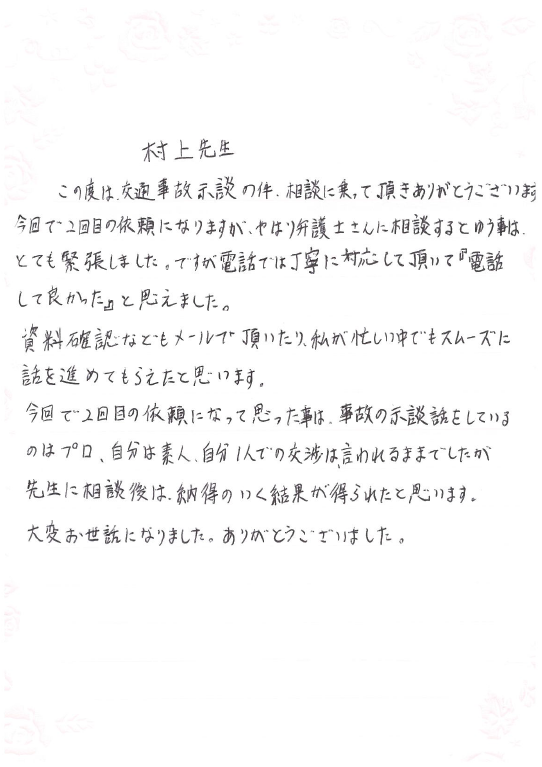 村上先生
この度は、交通事故示談の件、相談に乗って頂きありがとうございます
今回で2回目の依頼になりますが、やはり弁護士さんに相談するとゆう事は、
とても緊張しました。ですが電話では丁寧に対応して頂いて『電話
して良かった』と思えました。
資料確認などもメールで頂いたり、私が忙しい中でもスムーズに
話を進めてもらえたと思います。
今回で2回目の依頼になって思った事は、事故の示談話をしている
のはプロ、自分は素人、自分1人での交渉は、言われるままでしたが
先生に相談後は、納得のいく結果が得られたと思います。
大変お世話になりました。ありがとうございました。